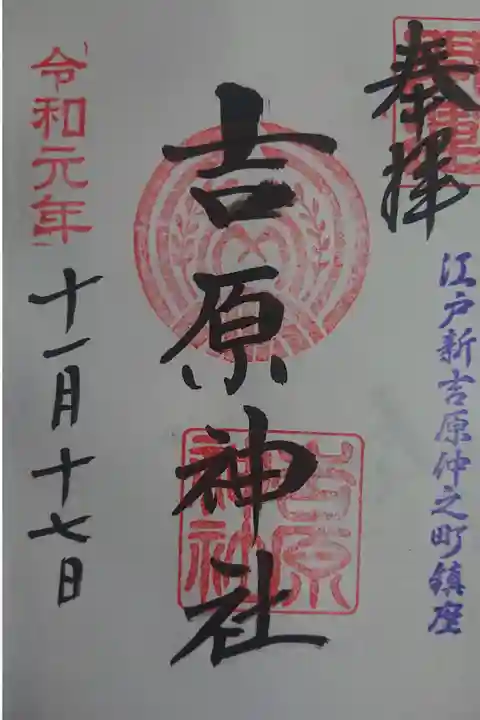 奉拝
江戸新吉原仲之町鎮座
吉原神社
吉原
神社
令和元年
十一月十七日